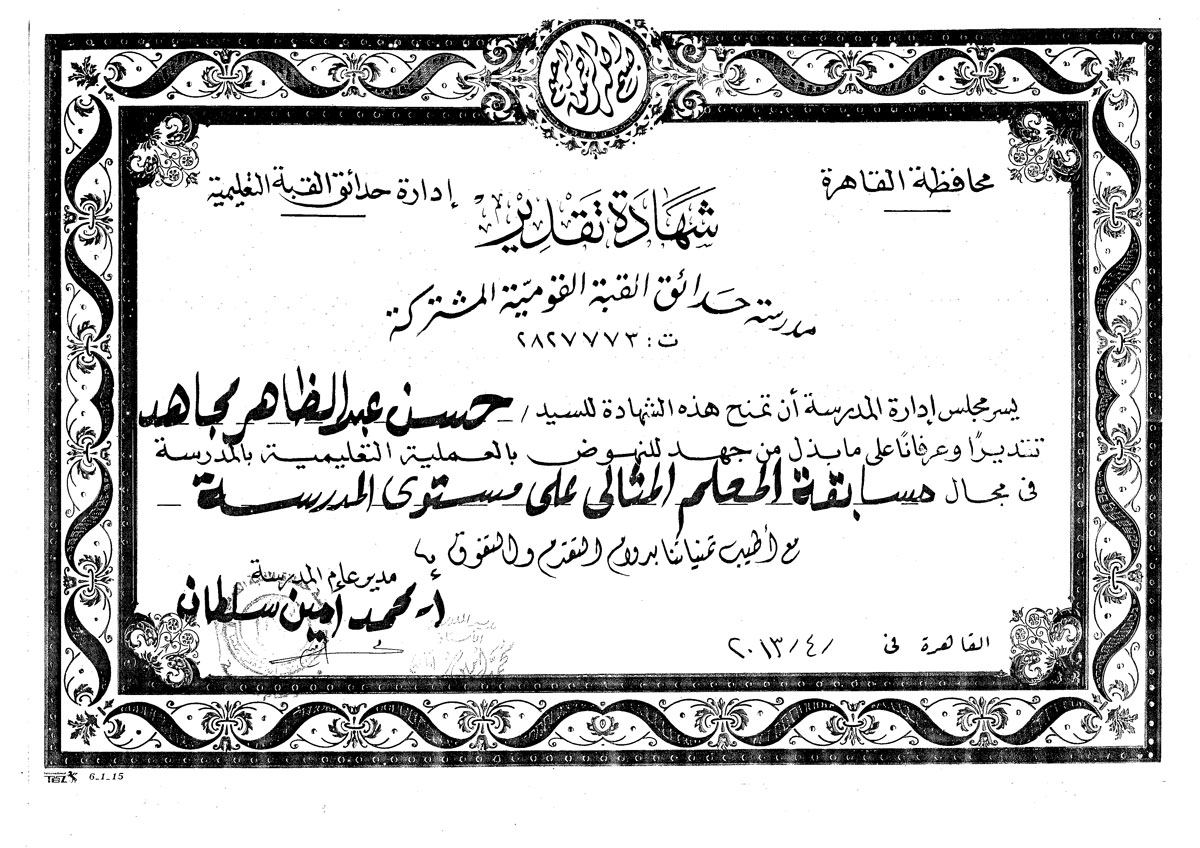 بسم الله الرحمن الرحيم
محافظة القاهرة
إدارة حدائق القبة التعليمية
شهادة تقدير
مدرسة حدائق القبة القومية المشتركة
ت : ٢٨٢٧٧٧٣
يسر مجلس إدارة المدرسة أن تمنح هذه الشهادة للسيد / حسن عبد الظاهر مجاهد
تقديرًا وعرفانًا على ما بذل من جهد للنهوض بالعملية التعليمية بالمدرسة
فى مجال مسابقة المعلم المثالى على مستوى المدرسة
مع أطيب تمنياتنا بدوام التقدم والتفوق
مدير عام المدرسة
أ- محمد أمين سلطان
القاهرة فى / ٤ / ٢٠١٣
TEBZ 6_1_15